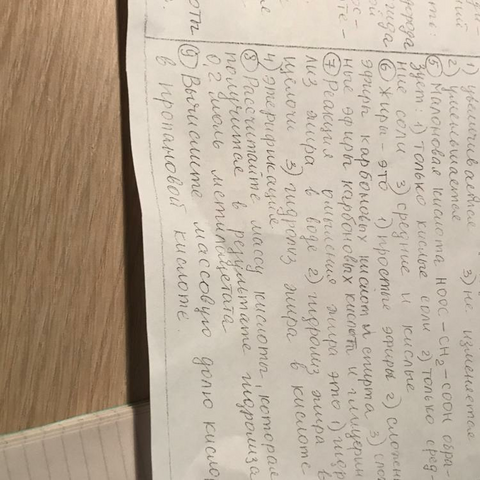 1) увеличивается 3) не изменяется
2) уменьшается
⑤ Малоновая кислота HOOC-CH2-COOH обра-
зует: 1) только кислые соли 2) только сред-
ние соли 3) средние и кислые
⑥ Жиры - это 1) простые эфиры 2) сложны
эфиры карбоновых кислот и спирта 3)
ные эфиры карбоновых кислот и глицерин
⑦ Реакция омыления жира это 1) гидр
лиз жира в воде 2) гидролиз жира в
щелочи 3) гидролиз жира в кислоте
4) этерификация
⑧ Рассчитайте массу кислоты, которая
получится в результате гидролиза
0,2 моль метилацетата
⑨ Вычислите массовую долю кисло
в пропановой кислоте.